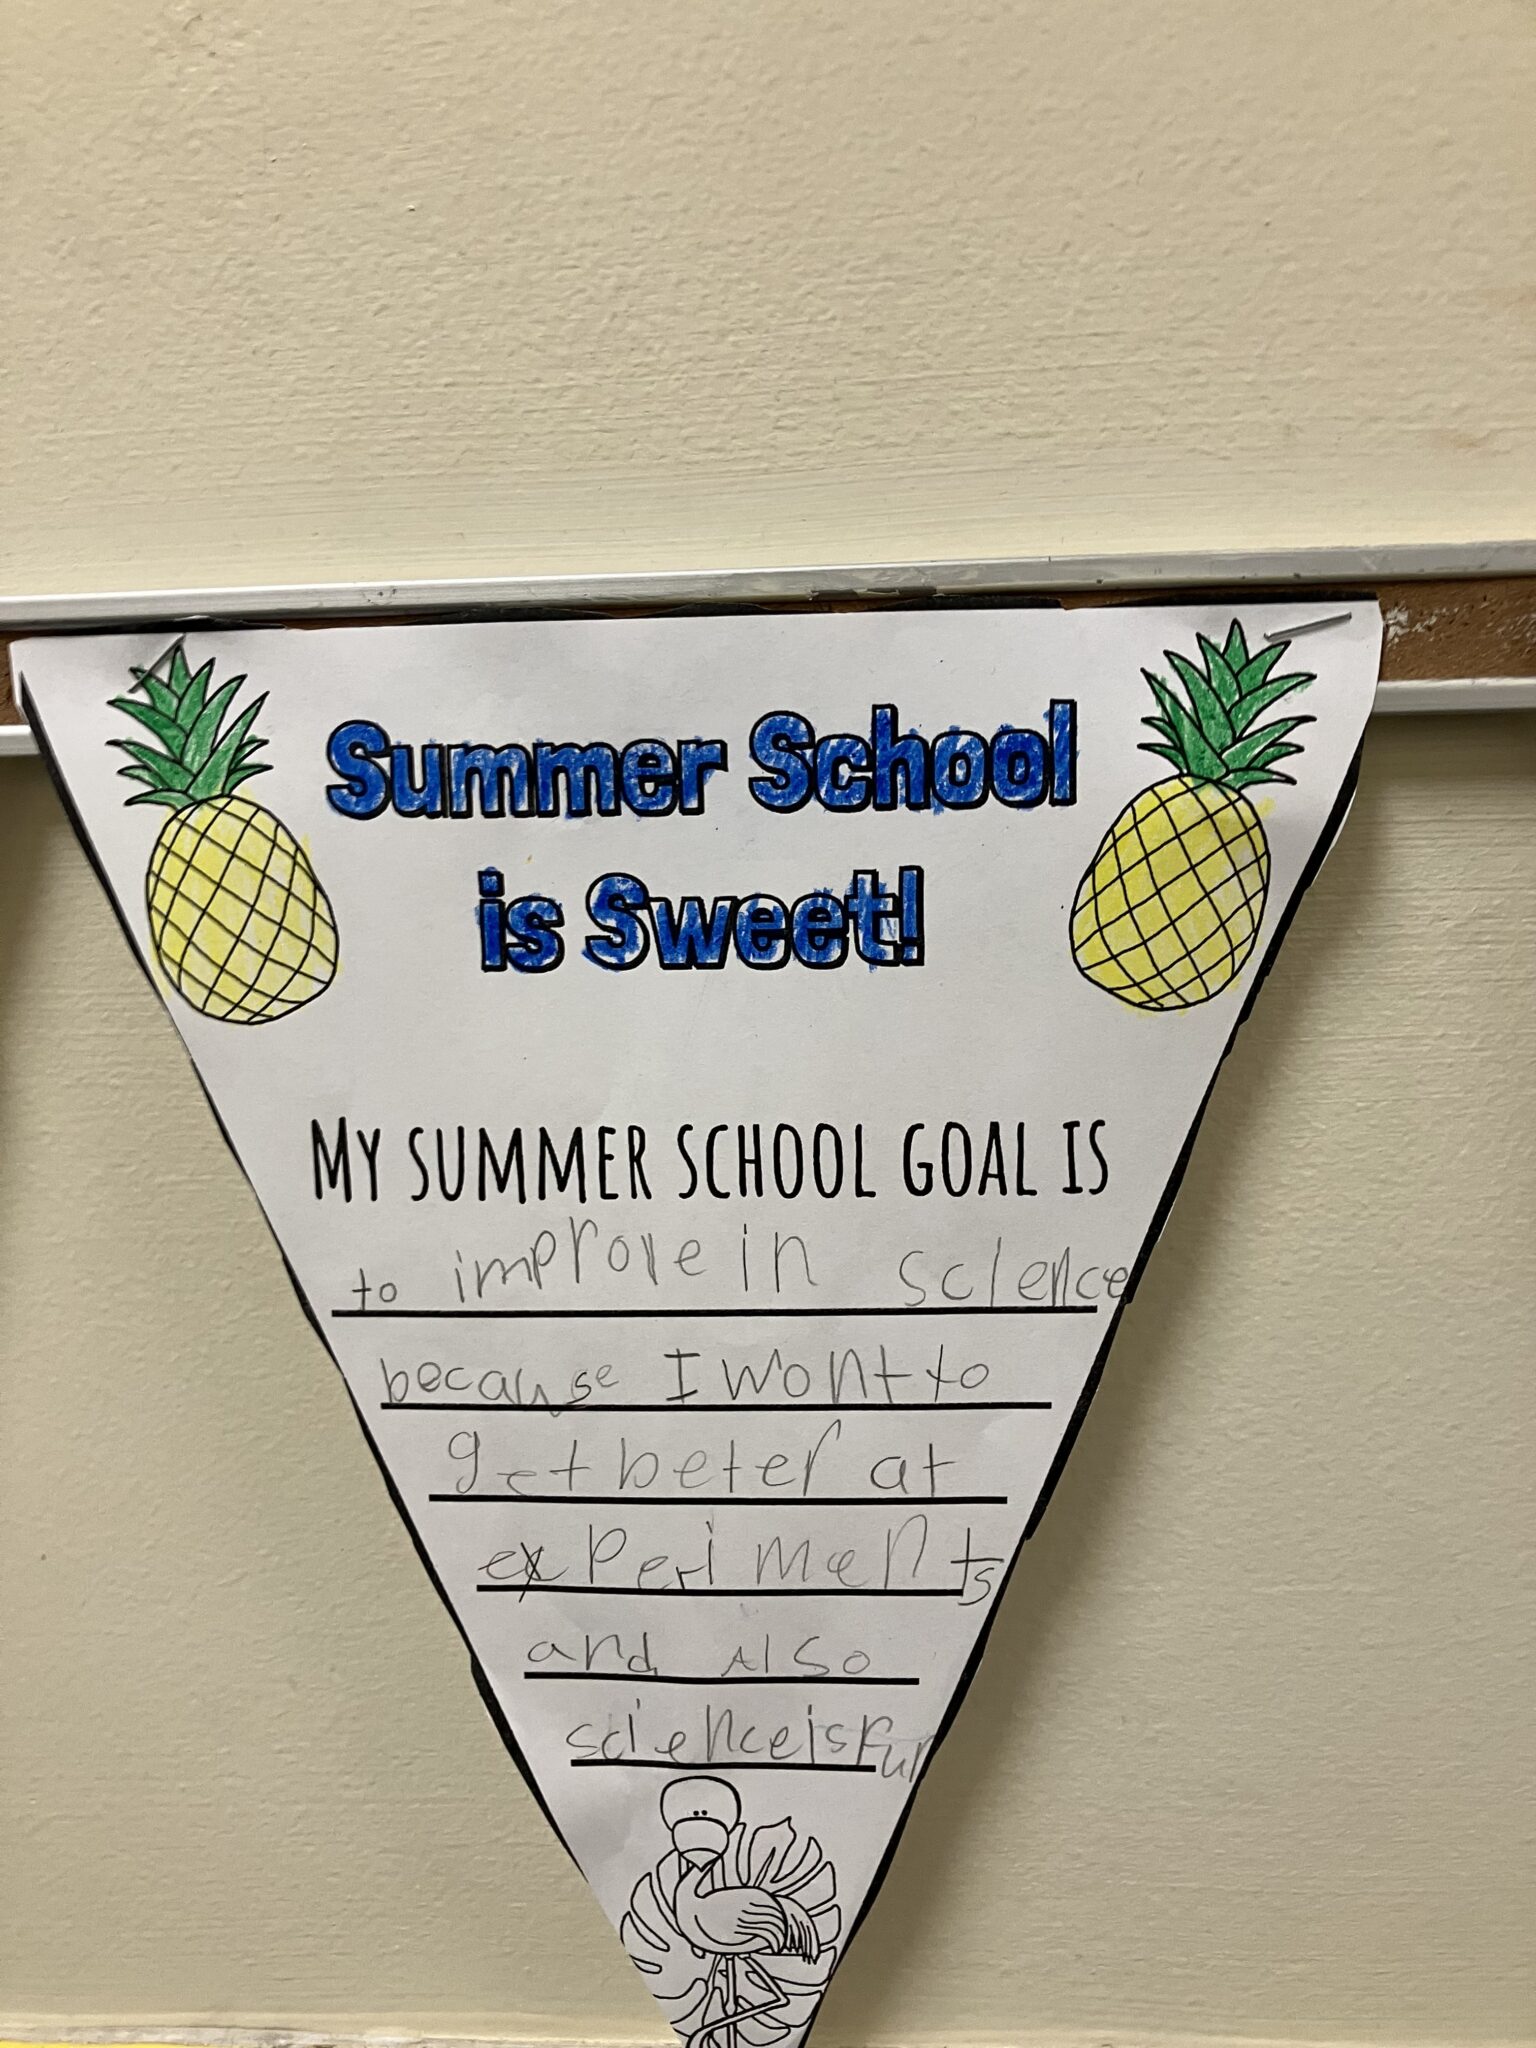 Summer School
is Sweet!
MY SUMMER SCHOOL GOAL IS
to improve in science
because I wont to
get beter at
experiments
and Also
science is Fun